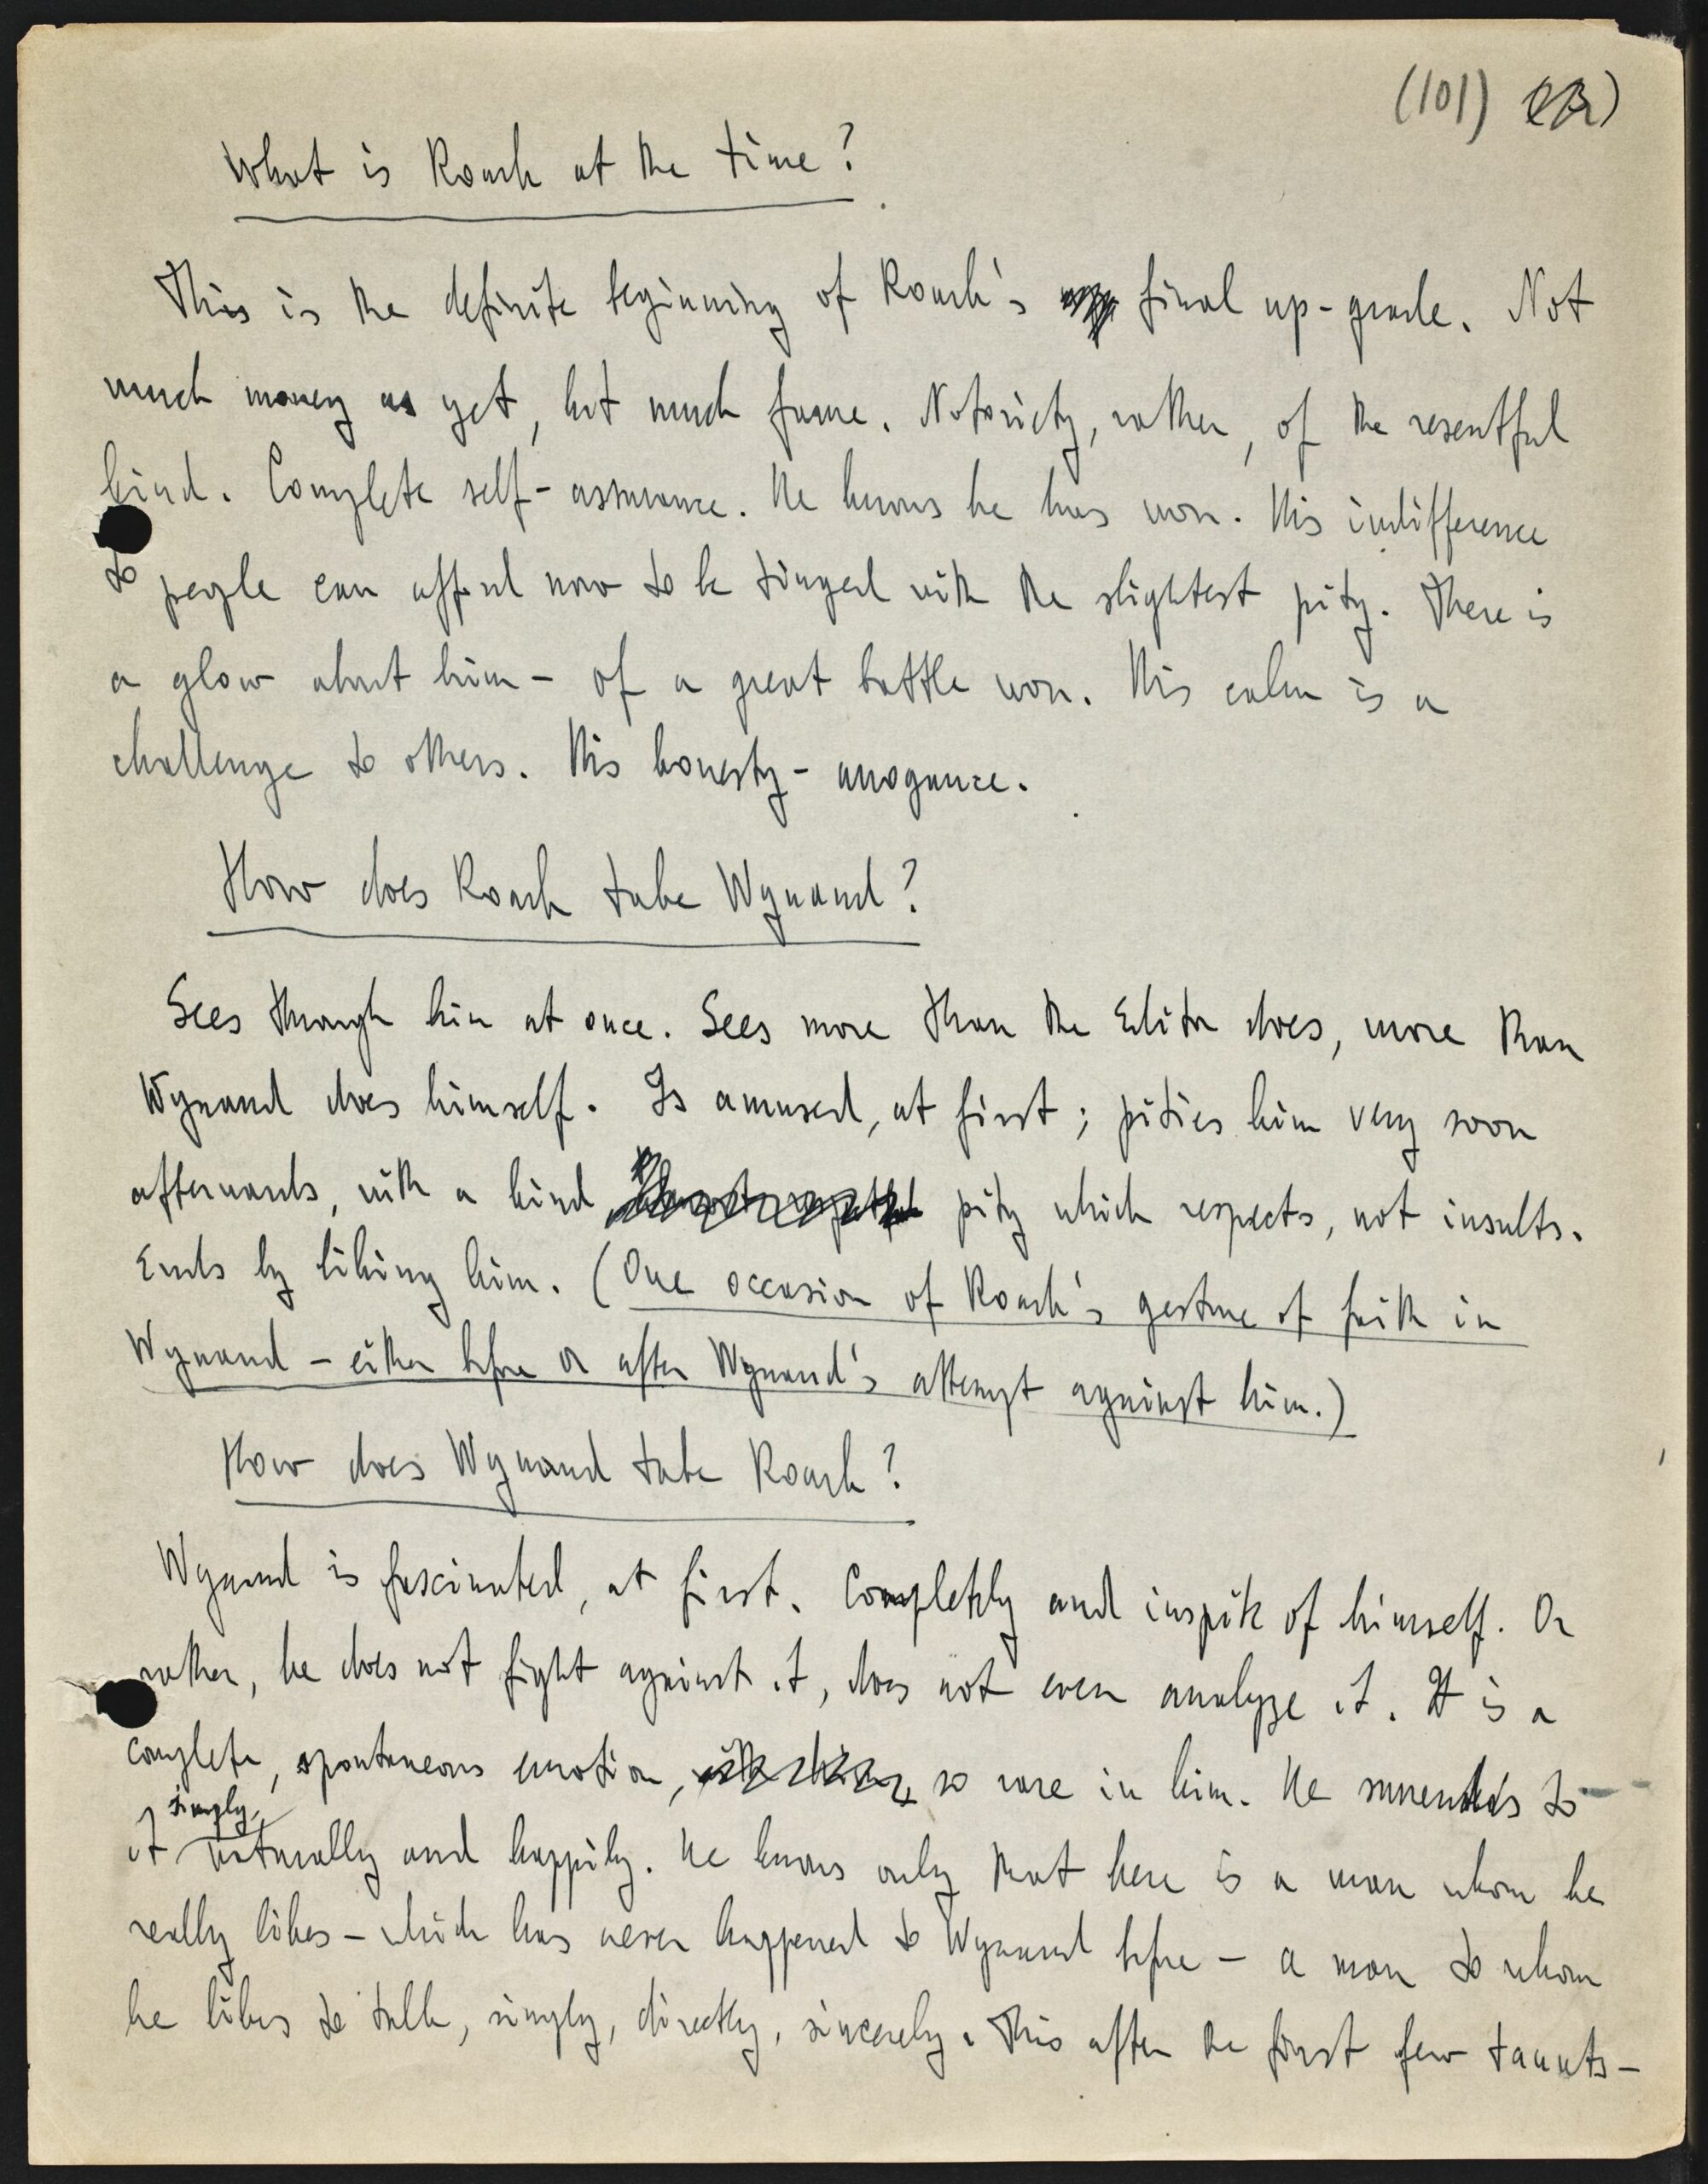 (101)
What is Roark at the time?
This is the definite beginning of Roark's final up-grade. Not
much money as yet, but much fame. Notoriety, rather, of the resentful
kind. Complete self-assurance. He knows he has won. His indifference
to people can afford now to be tinged with the slightest pity. There is
a glow about him – of a great battle won. His calm is a
challenge to others. His honesty – arrogance.
How does Roark take Wynand?
Sees through him at once. Sees more than the Editor does, more than
Wynand does himself. Is amused, at first; pities him very soon
afterwards, with a kind pity which respects, not insults.
Ends by liking him. (One occasion of Roark's gesture of faith in
Wynand – either before or after Wynand's attempt against him.)
How does Wynand take Roark?
Wynand is fascinated, at first. Completely and inspite of himself. Or
rather, he does not fight against it, does not even analyze it. It is a
complete, spontaneous emotion, so rare in him. He surrenders to
it simply, naturally and happily. He knows only that here is a man whom he
really likes – which has never happened to Wynand before – a man to whom
he likes to talk, simply, directly, sincerely. This after the first few taunts –